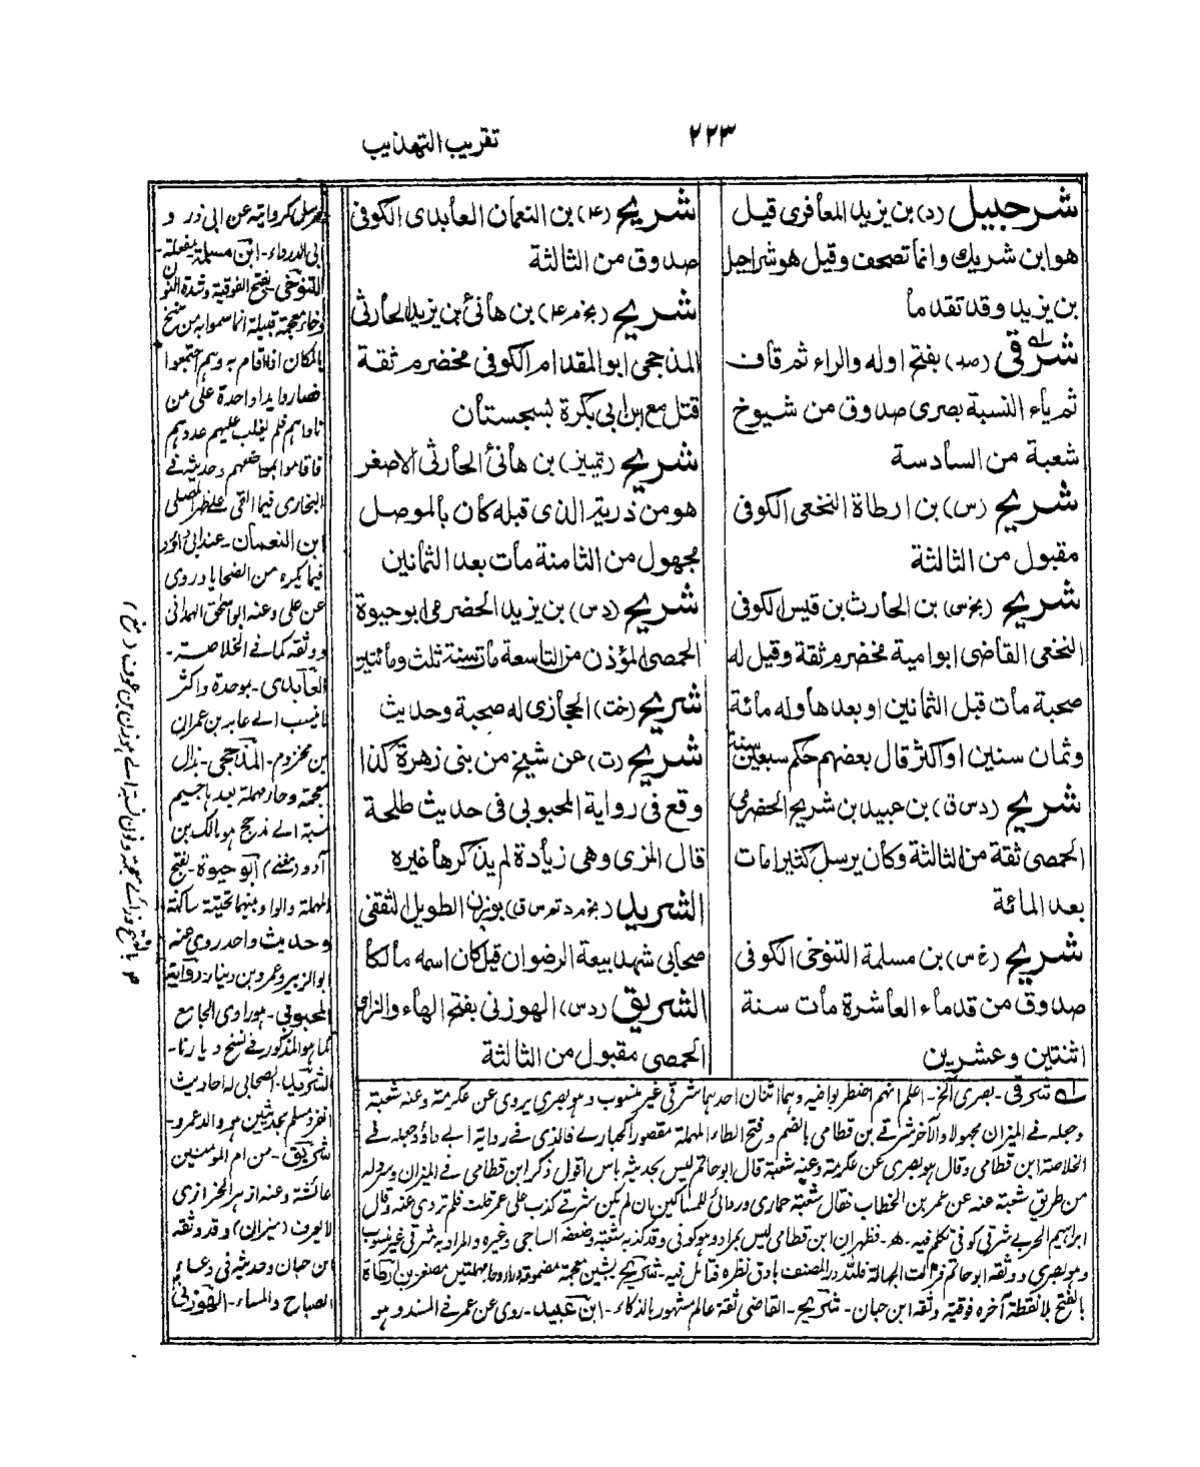 ٢٢٣
تقريب التهذيب
شرحبيل (د) بن يزيد المعافرى قيل
هو ابن شريك وانما تصحف وقيل هو شراحيل
بن يزيد وقد تقدما
شرقى (صد) بفتح اوله والراء ثم قاف
ثم ياء النسبة بصرى صدوق من شيوخ
شعبة من السادسة
شريح (س) بن ارطاة النخعى الكوفى
مقبول من الثالثة
شريح (بخ س) بن الحارث بن قيس الكوفى
النخعى القاضى ابو امية مخضرم ثقة وقيل له
صحبة مات قبل الثمانين او بعدها وله مائة
وثمان سنين او اكثر قال بعضهم حكم سبعين سنة
شريح (د س ق) بن عبيد بن شريح الحضرمى
الحمصى ثقة من الثالثة وكان يرسل كثيرا مات
بعد المائة
شريح (خ س) بن مسلمة التنوخى الكوفى
صدوق من قدماء العاشرة مات سنة
اثنتين وعشرين
شريح (٤) بن النعمان العابدى الكوفى
صدوق من الثالثة
شريح (بخ م ٤) بن هانئ بن يزيد الحارثى
المذحجى ابو المقدام الكوفى مخضرم ثقة
قتل مع ابن ابى بكرة بسجستان
شريح (تمييز) بن هانئ الحارثى الاصغر
هو من ذرية الذى قبله كان بالموصل
مجهول من الثامنة مات بعد الثمانين
شريح (د س) بن يزيد الحضرمى ابو حيوة
الحمصى المؤذن من التاسعة مات سنة ثلث ومائتين
شريح (خت) الحجازى له صحبة وحديث
شريح (ت) عن شيخ من بنى زهرة كذا
وقع فى رواية المحبوبى فى حديث طلحة
قال المزى وهى زيادة لم يذكرها غيره
الشريد (بخ م د تم س ق) بوزن الطويل الثقفى
صحابى شهد بيعة الرضوان قيل كان اسمه مالكا
الشريق (د س) الهوزنى بفتح الهاء والزاى
الحمصى مقبول من الثالثة
له شرقى - بصرى الخ - اعلم انهم اضطربوا فيه وهما اثنان احدهما شرقى غير منسوب وهو بصرى يروى عن عكرمة وعنه شعبة
وجعله فى الميزان مجهولا والآخر شرقى بن قطامى بالضم وفتح الطاء المهملة مقصورا كحبارى فالذى فى رواية ابى داؤد جعله فى
الخلاصة ابن قطامى وقال هو بصرى عن عكرمة وعنه شعبة قال ابو حاتم ليس بحديثه باس اقول ذكر ابن قطامى فى الميزان
من طريق شعبة عنه عن عمر بن الخطاب فقال شعبة حمارى وردائى للمساكين ان لم يكن شرقى كذب على عمر قلت فلم تروى عنه وقال
ابراهيم الحربى شرقى كوفى تكلم فيه - فظهر ان ابن قطامى ليس بمراد وهو كوفى وقد كذبه شعبة وضعفه الساجى وغيره والمراد به شرقى غير منسوب
وهو بصرى ووثقه ابو حاتم فزالت الجهالة فلله در المصنف ما دق نظره فتامل فيه - شريح بشين معجمة مضمومة وراء وحاء مهملتين مصغر بن ارطاة
بالفتح آخره فوقية وثقه ابن حبان - شريح - القاضى ثقة عالم مشهور بالذكاء - ابن عبيد - روى عن عمر فى المسند وهو
مرسل كروايته عن ابى ذر و
ابى الدرداء - ابن مسلمة بمفعلة -
التنوخى بفتح الفوقية وشدة النون
وخاء معجمة قبيلة انما سموا به من تنخ
بالمكان اذا اقام به وهم اجتمعوا
فصاروا يدا واحدة على من
ناواهم فلم يغلب عليهم عددهم
فاقاموا بمواضعهم وحديثه فى
البخارى فيما القى على ظهر المصلى
ابن النعمان - عند ابى داؤد
فيما يكره من الضحايا وروى
عن على وعنه ابو اسحق الهمدانى
ووثقه كما فى الخلاصة -
العابدى - بموحدة واكثر
ما ينسب الى عابد بن عمران
ابن مخزوم - المذحجى - بذال
معجمة وحاء مهملة بعدها جيم
نسبة الى مذحج هو مالك بن
أدد (مغنى) ابو حيوة - بفتح
المهملة والواو بينهما تحتية ساكنة
وحديث واحد روى عنه
ابو الزبير وعمرو بن دينار - رواية
المحبوبى - هو راوى الجامع
كما هو المذكور فى نسخ ديارنا -
الشريد - الصحابى له احاديث
انفرد مسلم بحديثين هو والد عمرو -
شريق - من ام المؤمنين
عائشة وعنه ازهر الحرازى
لا يعرف (ميزان) وقد وثقه
ابن حبان وحديثه فى دعاء
الصباح والمساء - الهوزنى
بالفتح وزاى معجمة ونون نسبة الى هوزن بن عوف (مغ)